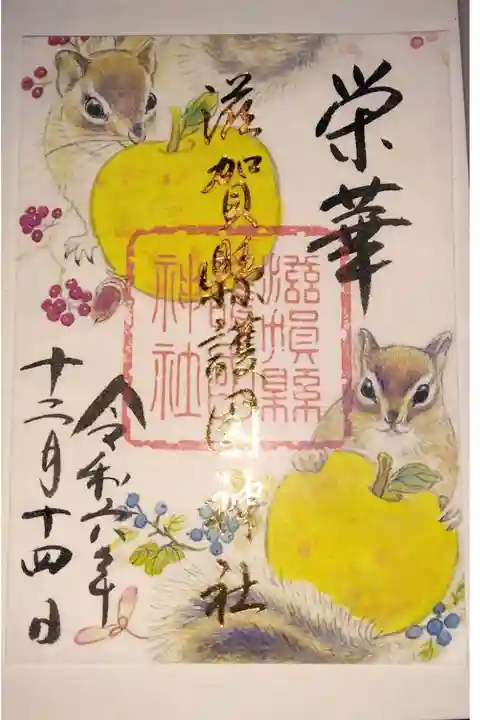 栄華
滋賀縣護国神社
滋賀縣
護國
神社
令和六年
十二月十四日